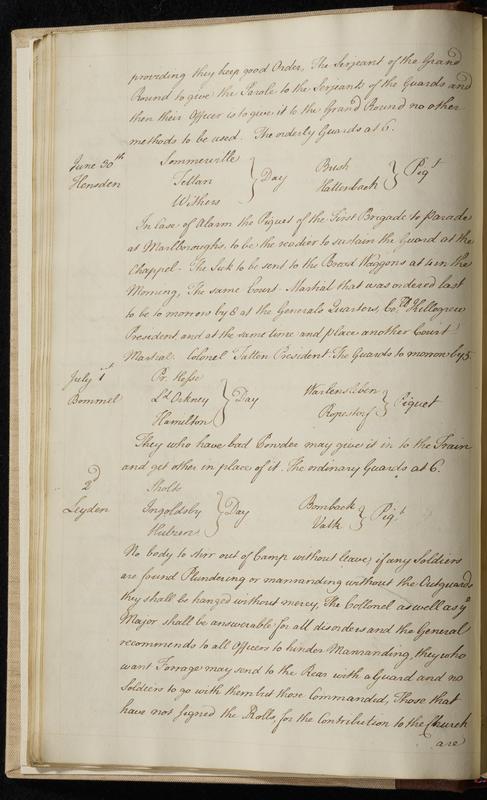 providing they keep good Order, The Serjeant of the Grand
Round to give the Parole to the Serjeants of the Guards and
then their Officer is to give it to the Grand Round no other
methods to be used. The orderly Guards at 6.
June 30th Sommerville
Hensden Tettau } Day Bush } Piqt
Withers Hattenbach
In Case of Alarm the Piquet of the First Brigade to parade
at Marlboroughs, to be the readier to sustain the Guard at the
Chappel. The Sick to be sent to the Bread Waggons at 4 in the
Morning, The same Court-Martial that was ordered last
to be to morrow by 8 at the Generals Quarters, Coll Hellogrew
President, and at the same time and place another Court
Martial. Colonel Tatten President. The Guards to morrow by 5.
July 1st Pr. Hesse
Bommel Ld Orkney } Day Wartensleben } Piquet
Hamilton Ropestorf
They who have bad Powder may give it in to the Train
and get other in place of it. The ordinary Guards at 6.
2d Tholts
Leyden Ingoldsby } Day Bomback } Piqt
Hulzen Valk
No body to stirr out of Camp without leave, if any Soldiers
are found Plundering or marrauding without the Outguards
they shall be hanged without mercy, The Collonel as well as ye
Major shall be answerable for all disorders and the General
recommends to all Officers to hinder Marrauding, they who
want Forrage may send to the Rear with a Guard and no
Soldiers to go with them but those Commanded, Those that
have not signed the Rolls, for the Contribution to the Church
are